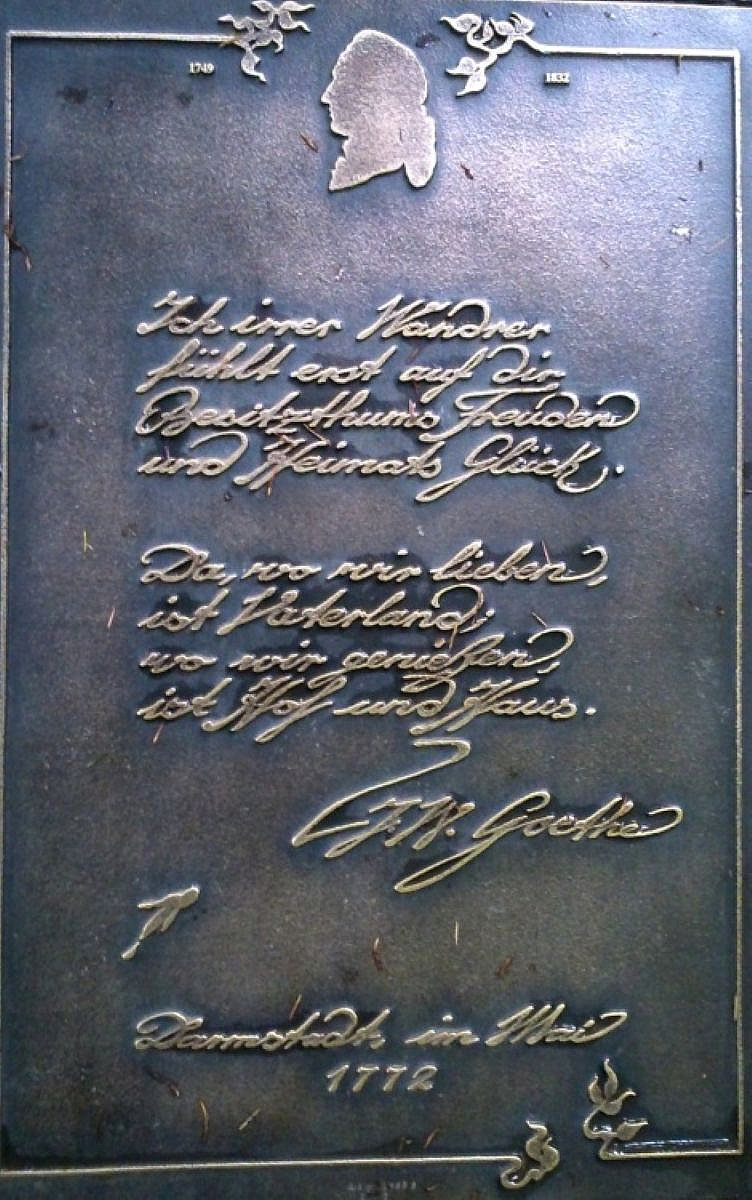 1749 1832
Ich irrer Wandrer
fühlt erst auf dir
Besitzthums Freuden
und Heimats Glück.
Da, wo wir lieben,
ist Vaterland;
wo wir genießen,
ist Hof und Haus.
J. W. Goethe
Darmstadt, im Mai
1772